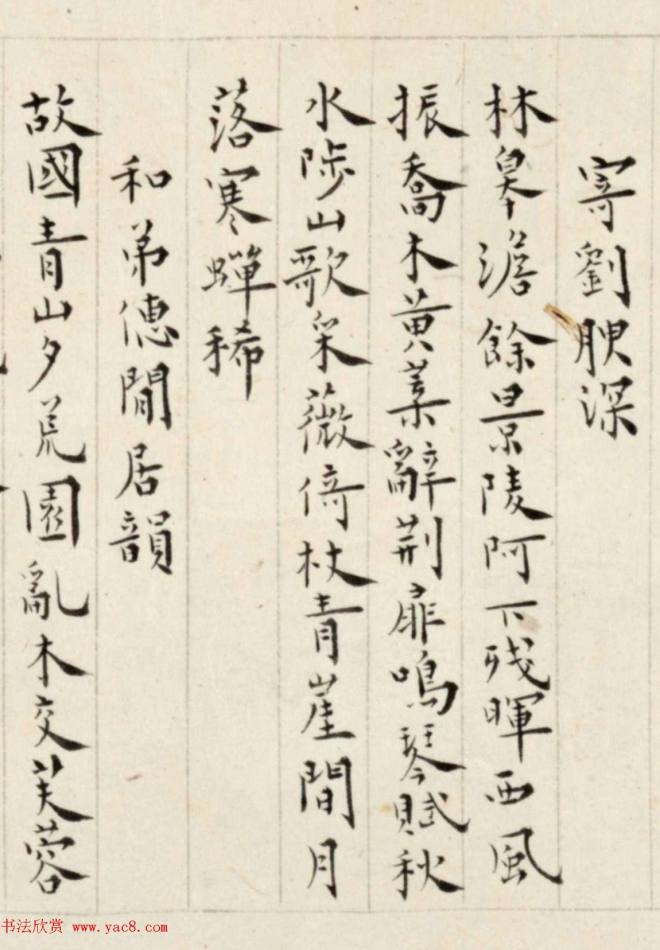 寄劉腴深
林皋澹餘景陵阿下殘暉西風
振喬木黃葉辭荆扉鳴琴賦秋
水陟山歌采薇倚杖青崖間月
落寒蟬稀
和弟德閒居韻
故國青山夕荒園亂木交芙蓉
书法欣赏 www.yac8.com